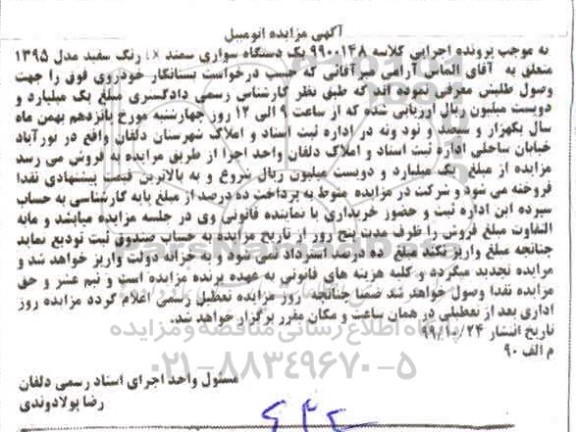 آگهی مزایده اتومبیل
به موجب پرونده اجرایی کلاسه ۹۹۰۰۱۴۸ یک دستگاه سواری سمند LX رنگ سفید مدل ۱۳۹۵
متعلق به آقای الماس آرامی میرآقائی که حسب درخواست بستانکار خودروی فوق را جهت
وصول طلبش معرفی نموده اند که طبق نظر کارشناس رسمی دادگستری مبلغ یک میلیارد و
دویست میلیون ریال ارزیابی شده که از ساعت ۹ الی ۱۲ روز چهارشنبه مورخ پانزدهم بهمن ماه
سال یکهزار و سیصد و نود ونه در اداره ثبت اسناد و املاک شهرستان دلفان واقع در نورآباد
خیابان ساحلی اداره ثبت اسناد و املاک دلفان واحد اجرا از طریق مزایده به فروش می رسد
مزایده از مبلغ یک میلیارد و دویست میلیون ریال شروع و به بالاترین قیمت پیشنهادی نقدا
فروخته می شود و شرکت در مزایده منوط به پرداخت ده درصد از مبلغ پایه کارشناسی به حساب
سپرده این اداره ثبت و حضور خریداری یا نماینده قانونی وی در جلسه مزایده میباشد و مابه
التفاوت مبلغ فروش را ظرف مدت پنج روز از تاریخ مزایده به حساب صندوق ثبت تودیع نماید
چنانچه مبلغ واریز نکند مبلغ ده درصد استرداد نمی شود و به خزانه دولت واریز خواهد شد و
مزایده تجدید میگردد و کلیه هزینه های قانونی به عهده برنده مزایده است و نیم عشر و حق
مزایده نقدا وصول خواهد شد ضمنا چنانچه روز مزایده تعطیل رسمی اعلام گردد مزایده روز
اداری بعد از تعطیلی در همان ساعت و مکان مقرر برگزار خواهد شد.
تاریخ انتشار ۹۹/۱۰/۲۴
م الف ۹۰
پایگاه اطلاع رسانی مناقصه و مزایده
۰۲۱-۸۸۳۴۹۶۷۰-۵
مسئول واحد اجرای اسناد رسمی دلفان
رضا پولادوندی